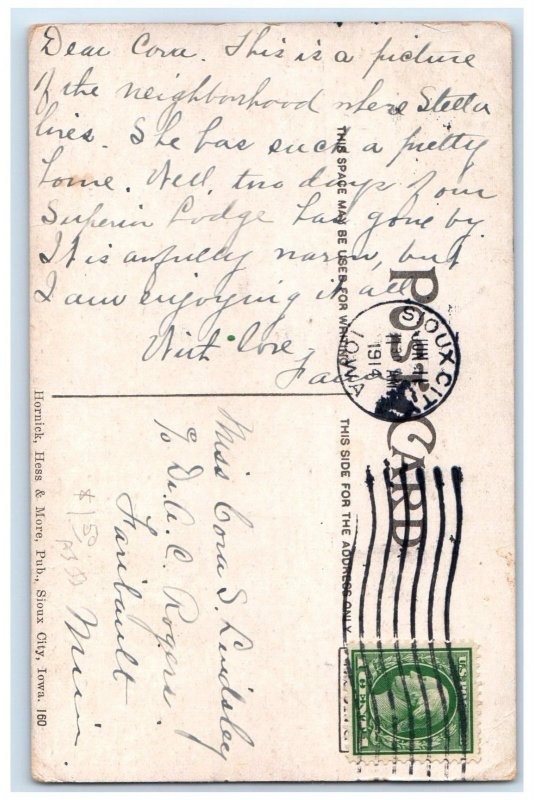 Dear Cora. This is a picture
of the neighborhood where Stella
lives. She has such a pretty
home. Well, two days of our
Superior Lodge has gone by.
It is awfully warm, but
I am enjoying it all.
With love,
POST CARD
THIS SPACE MAY BE USED FOR WRITING
THIS SIDE FOR THE ADDRESS ONLY
SIOUX CITY
JUN
1914
IOWA
Miss Cora S. Lindsley
c/o Dr. A. C. Rogers
Faribault
Minn.
$1.50
U.S. POSTAGE
1 CENT 1
Hornick, Hess & More, Pub., Sioux City, Iowa. 160